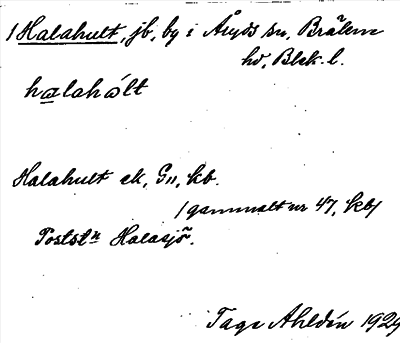 /Halahult, jb, by i Åryds sn, Bräkne
hd, Blek. l.
halahult
Halahult ek, G11, kb.
/gammalt nr 47, kb/
Postst:n Halasjö.
Tage Ahldén 1929